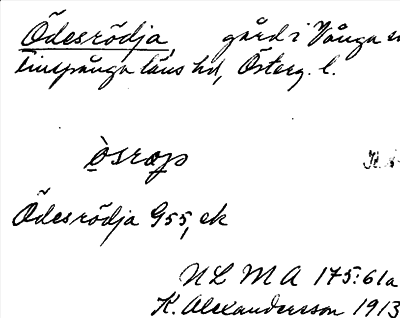 Ödesrödja, gård i Vånga sn
Finspånga läns hd, Österg. l.
Ödesrödja G55, ek
NLMA 175:61a
K. Alexanderson 1913